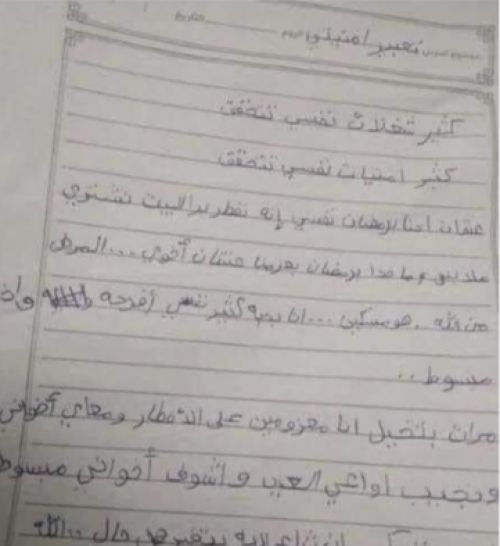 تعبير امنيتي
كثير شغلات نفسي تتحقق
كثير امنيات نفسي تتحقق
عشان احنا برمضان نفسي إنه نفطر برا البيت نشتري
ملابس وما حدا برمضان بعزمنا عشان أخوي ... المرض
من الله . هو مسكين ... انا بحبه كثير نفسي أفرحه
مبسوط ..
مرات بتخيل انا معزومين على الافطار ومعاي أخواني
ونجيب اواعي العيد واشوف أخواني مبسوط
حال .. الله